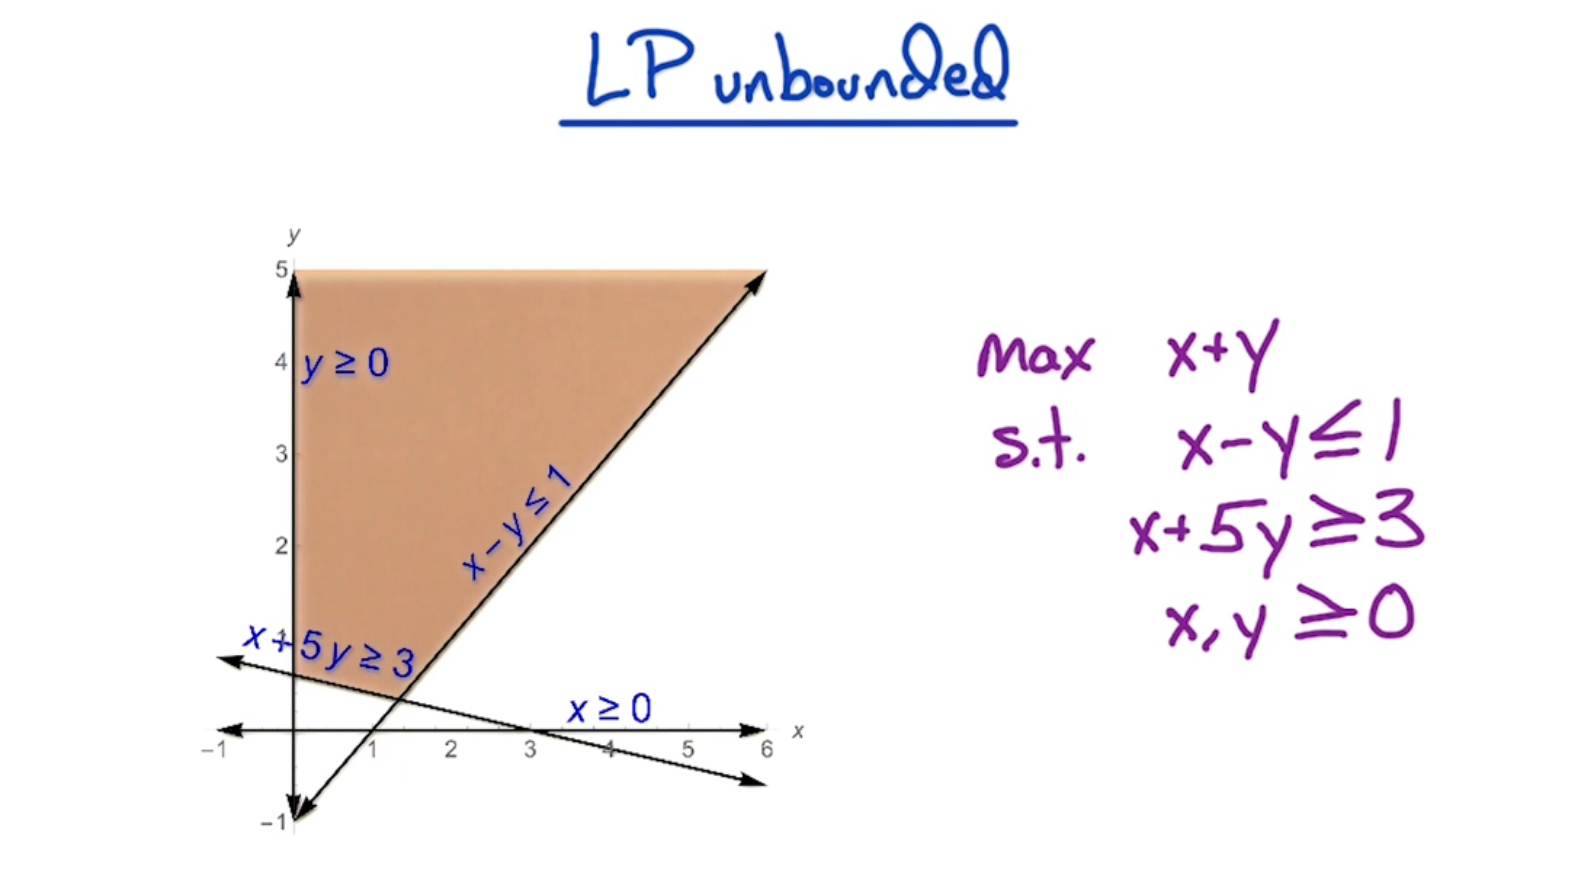 LP unbounded
y
5
4
y ≥ 0
3
x − y ≤ 1
2
1
x + 5 y ≥ 3
x ≥ 0
−1 1 2 3 4 5 6 x
−1
max x+y
s.t. x−y≤1
x+5y≥3
x,y ≥0